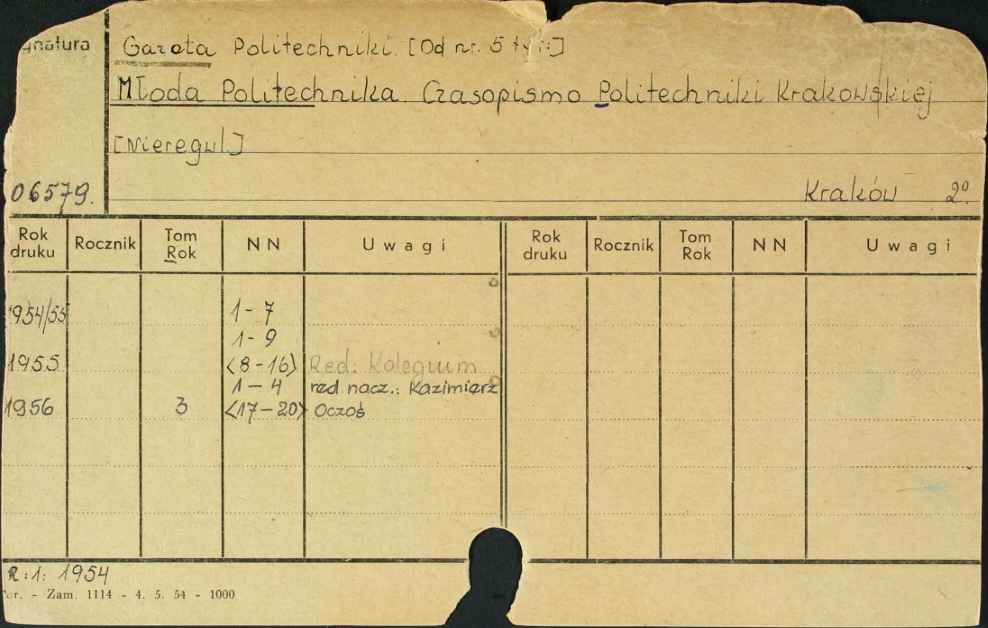 gnatura
Gazeta Politechniki. [Od nr. 5 tyt:]
Młoda Politechnika. Czasopismo Politechniki Krakowskiej
[Nieregul.]
06579.
Kraków 2°.
Rok druku Rocznik Tom Rok NN Uwagi Rok druku Rocznik Tom Rok NN Uwagi
1954/55 1-7
1-9
1955 <8-16> Red: Kolegium
1-4 red. nacz.: Kazimierz
1956 3 <17-20> Oczoś
R:1: 1954
Zam. 1114 - 4. 5. 54 - 1000